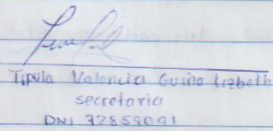 Tipula Valencia Guina Lizbeth
secretaria
DNI 72859091